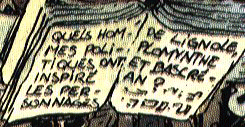 QUELS HOM-
MES POLI-
TIQUES ONT
INSPIRÉ
LES PER-
SONNAGES
DE LIGNOLE,
PLOMYNTHE
ET BASCRÉ-
AN ?